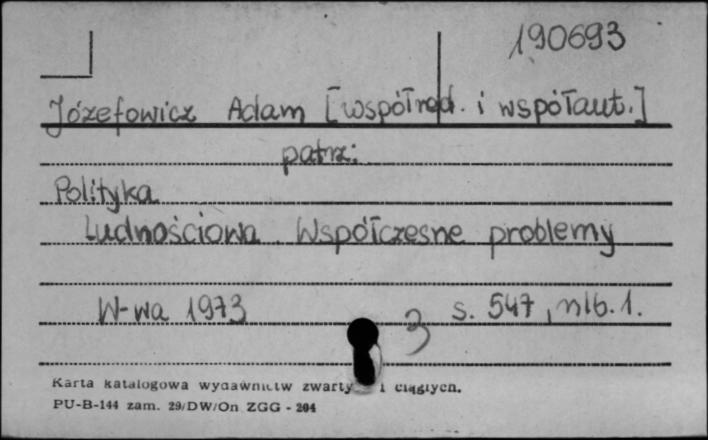 190693
Józefowicz Adam [współred. i współaut.]
patrz:
Polityka
Ludnościowa. Współczesne problemy
W-wa 1973 s. 547, nlb. 1.
3
Karta katalogowa wydawnictw zwarty i ciągłych.
PU-B-144 zam. 29/DW/On ZGG - 204